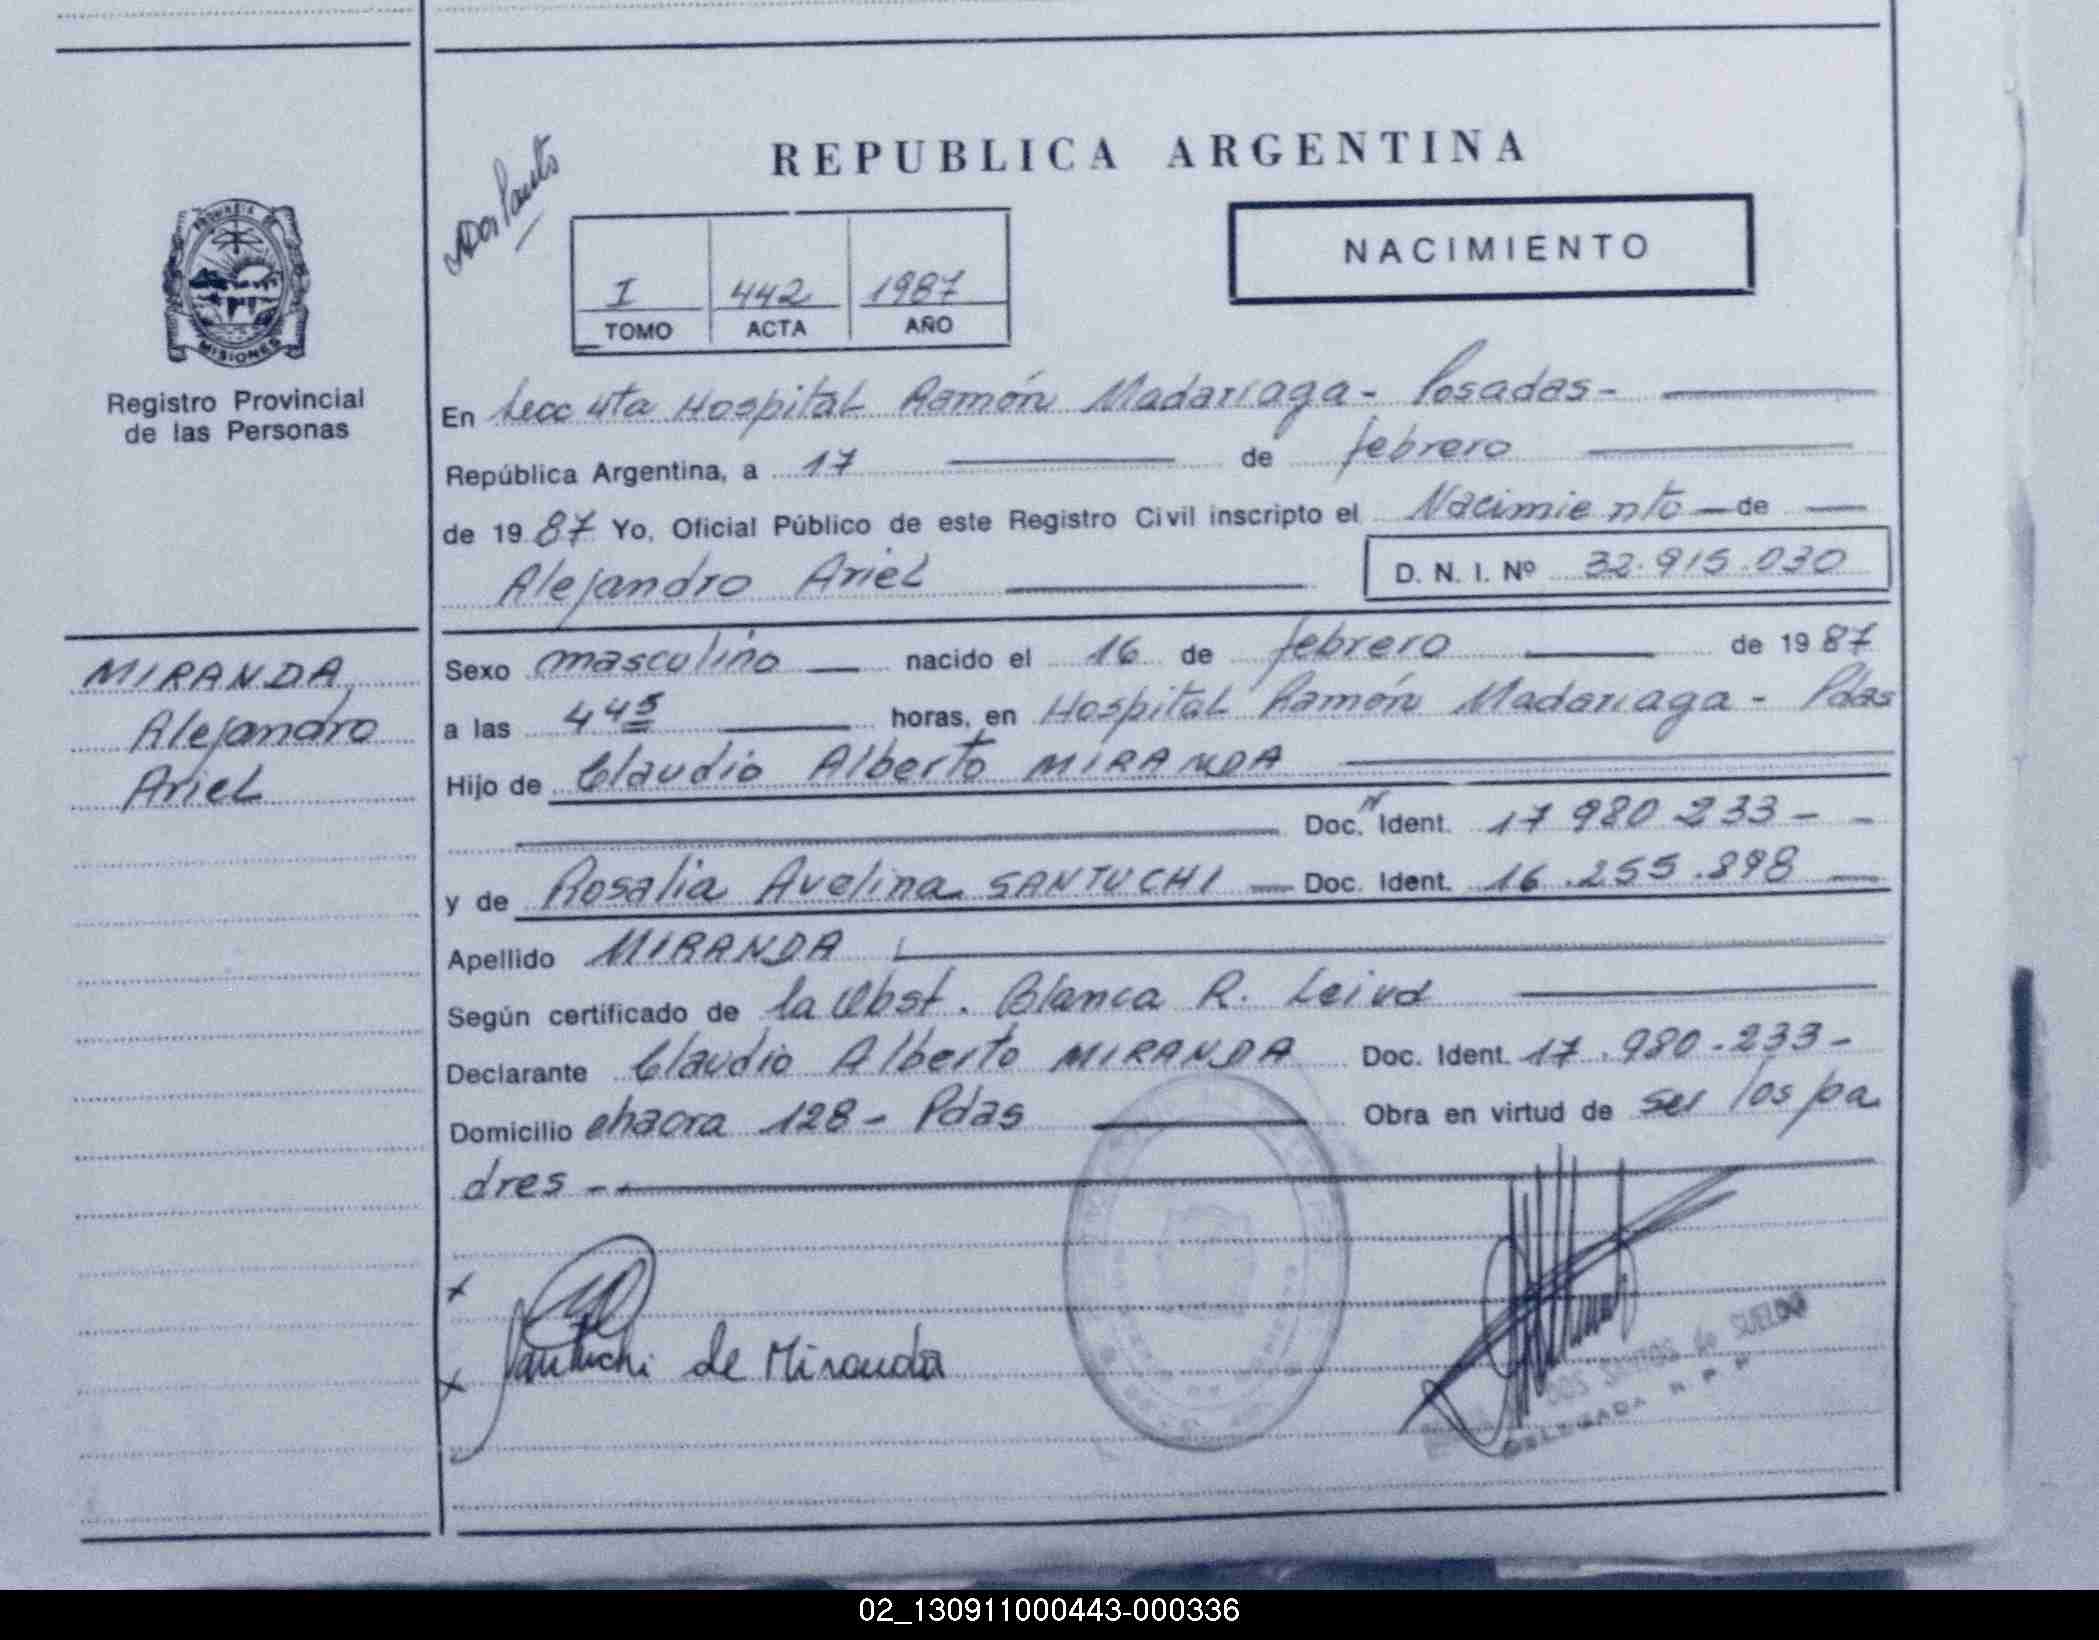 REPUBLICA ARGENTINA
NACIMIENTO
I 442 1987
TOMO ACTA AÑO
PROVINCIA DE
MISIONES
Registro Provincial
de las Personas
MIRANDA,
Alejandro
Ariel
En Secc 4ta Hospital Ramón Madariaga - Posadas -
República Argentina, a 17 de febrero
de 1987 Yo, Oficial Público de este Registro Civil inscripto el Nacimiento de
Alejandro Ariel D. N. I. Nº 32.915.030
Sexo masculino nacido el 16 de febrero de 1987
a las 4 45 horas, en Hospital Ramón Madariaga - Pdas
Hijo de Claudio Alberto MIRANDA
Doc. Ident. 17 980 233 -
y de Rosalia Avelina SANTUCHI Doc. Ident. 16.255.898
Apellido MIRANDA
Según certificado de la Obst. Blanca R. Leiva
Declarante Claudio Alberto MIRANDA Doc. Ident. 17.980.233-
Domicilio chacra 128 - Pdas Obra en virtud de ser los pa
dres - -
Santuchi de Miranda
DOS SANTOS de SUELDO
DELEGADA R. P. P.
02_130911000443-000336